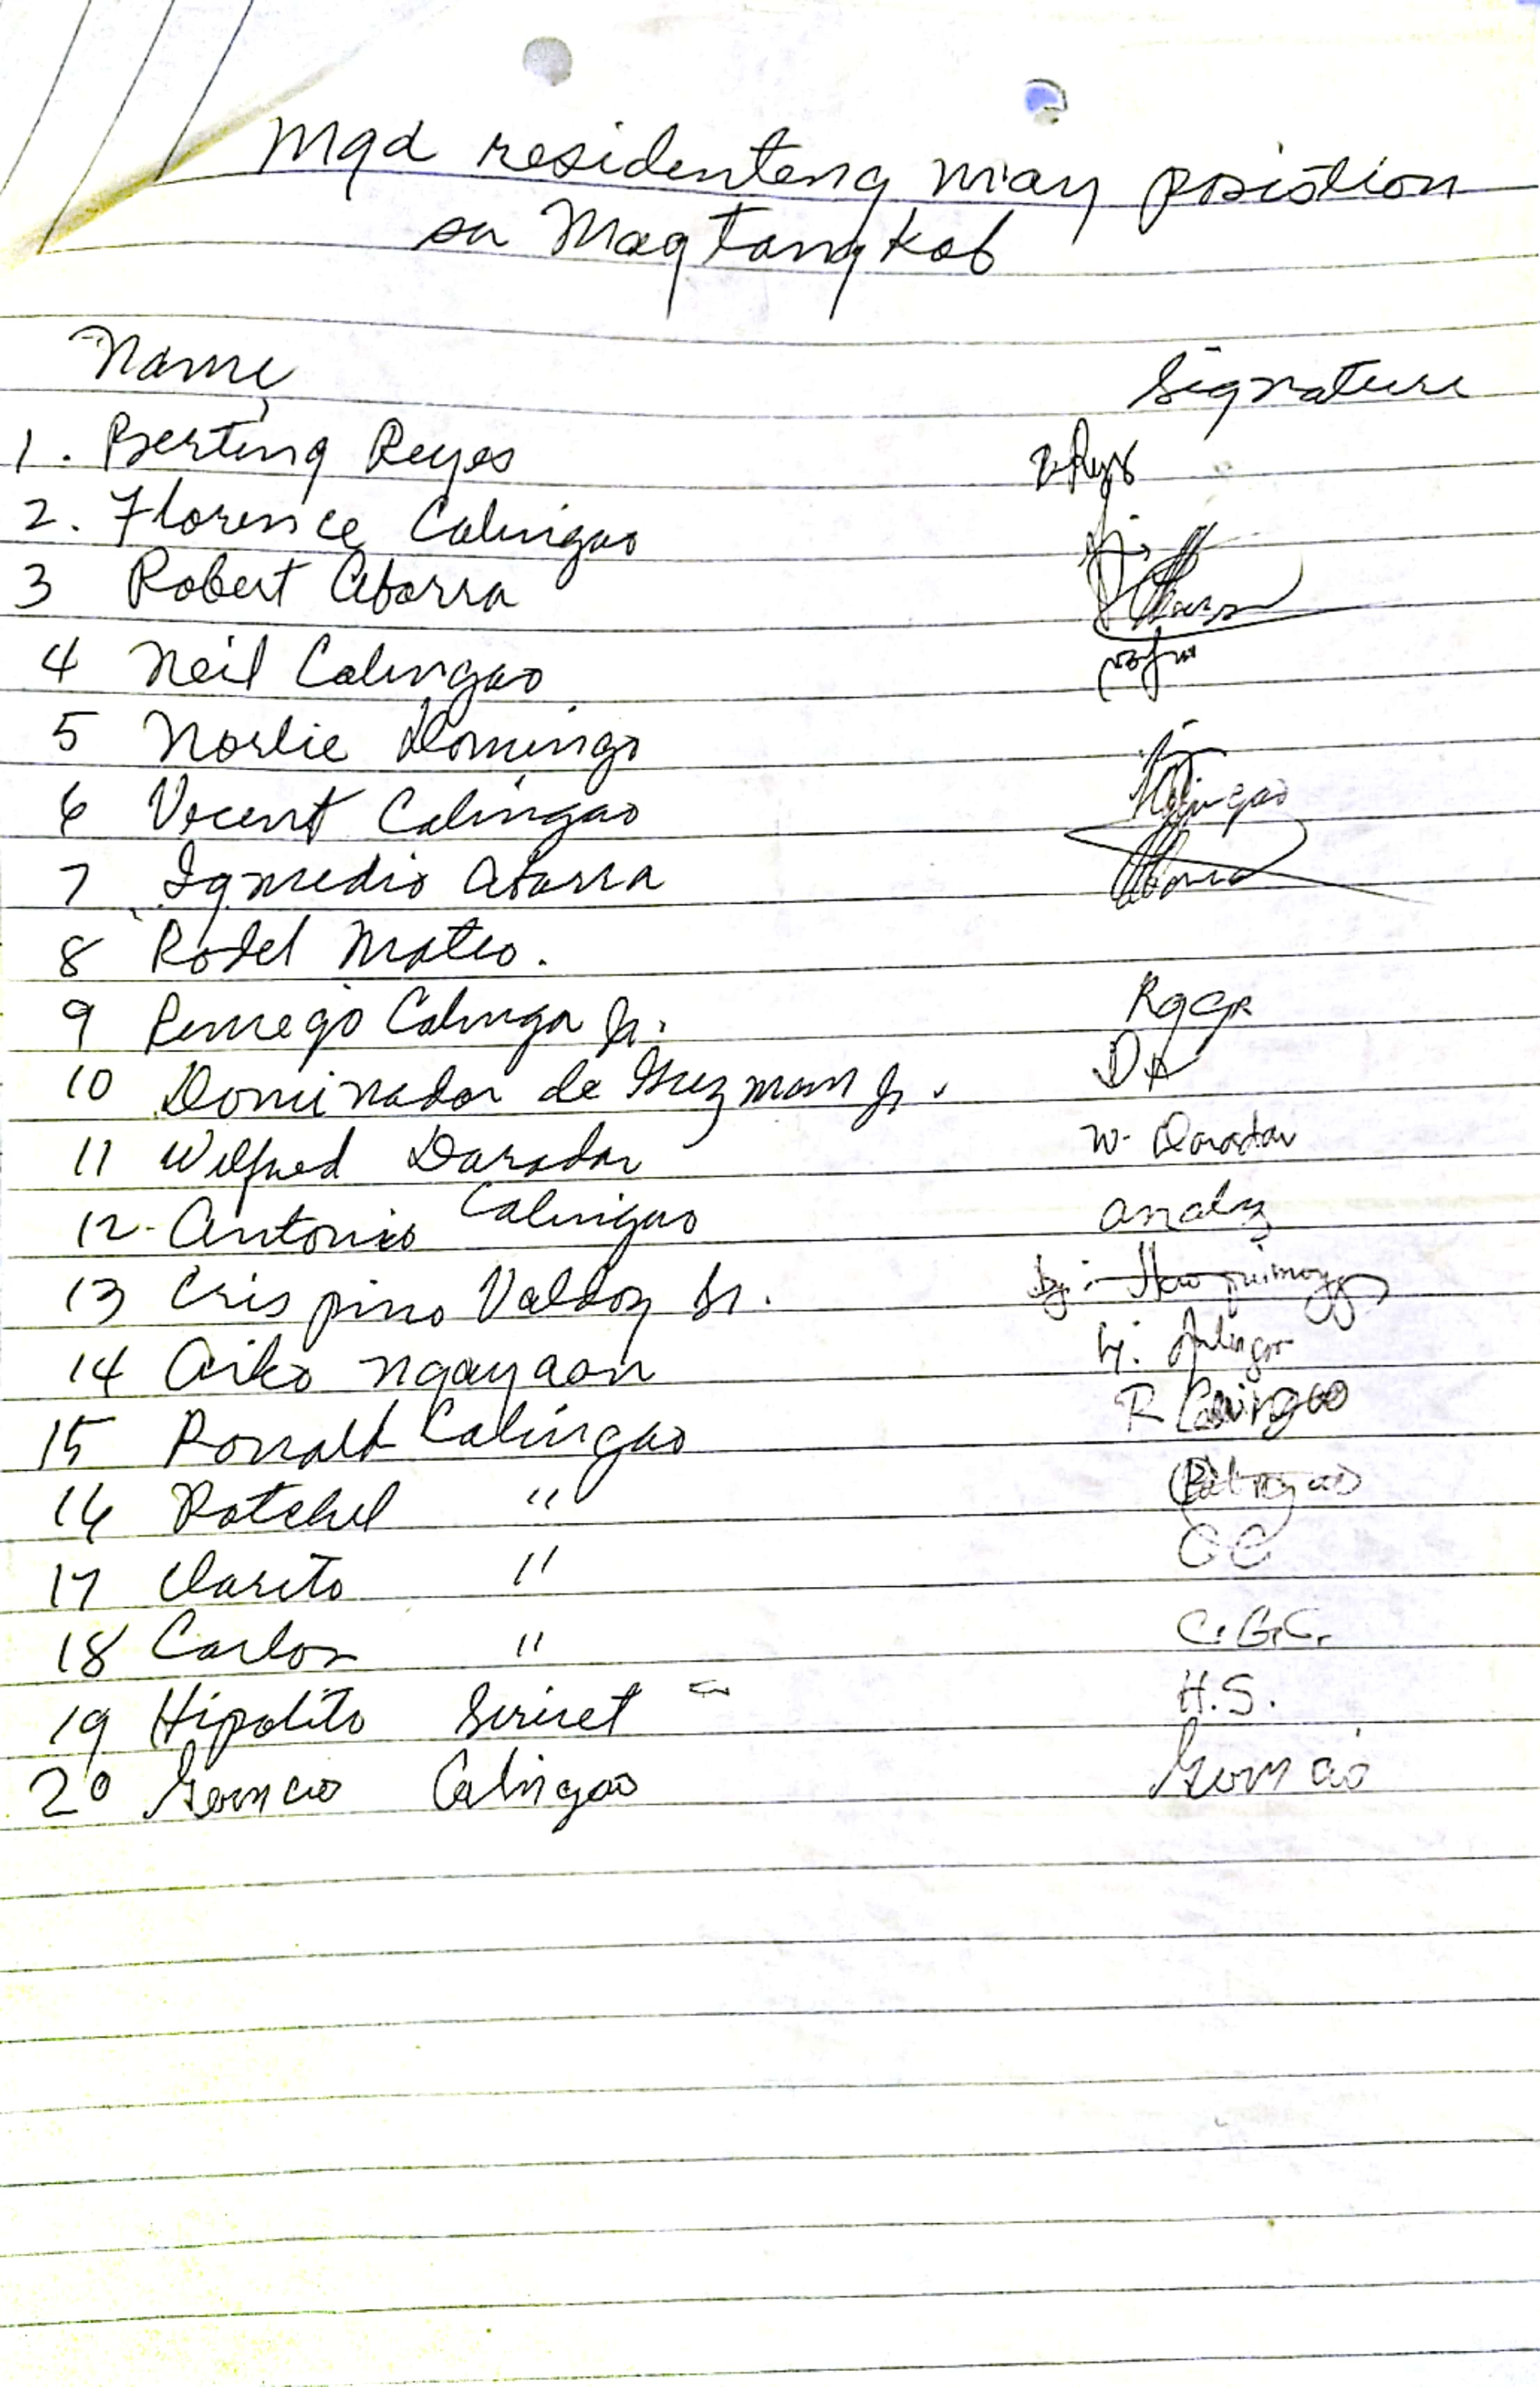 Mga residenteng may posistion
sa Magtangkob
Name Signature
1. Berting Reyes B Reyes
2. Florence Calingao
3 Robert Abarra
4 Neil Calingao
5 Norlie Domingo
6 Vecent Calingao
7 Igmedio Abarra
8 Rodel Mateo.
9 Remegio Calinga Jr.
10 Dominador de Guzman Jr.
11 Wilfred Daradar W. Daradar
12. Antonio Calingao
13 Crispino Valdoz Sr.
14 Aiko Ngayaan
15 Ronald Calingao R Calingao
16 Ratchel "
17 Clarito " CC
18 Carlos " C.G.C.
19 Hipolito Seriset H.S.
20 Gerncio Calingao Gerncio